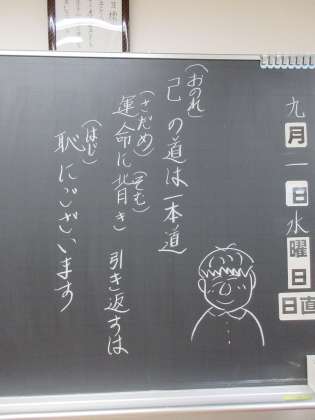 九月一日水曜日
日直
(おのれ)
己の道は一本道
(さだめ) (そむ)
運命に背き 引き返すは
(はじ)
恥にございます